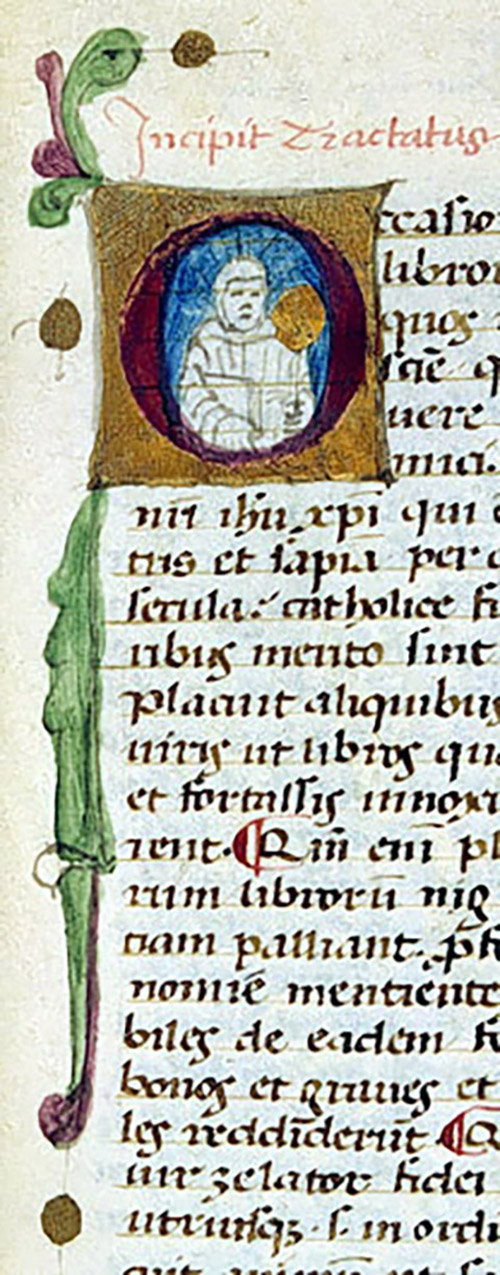 Incipit Tractatus
Occasio
libror
quos
scie q
uere
mia.
nri ihu xpi qui
tris et sapia per
secula. catholice fi
ribus merito sint
placuit aliquibus
uiris ut libros qu
et fortassis innox
rent. Qm eni pl
rum libroru nig
tiam palliant.
nomie mentiente
biles de eadem
bonos et graues et
les reddiderut. Q
uir zelator fidei
utriusq; s. in ordi